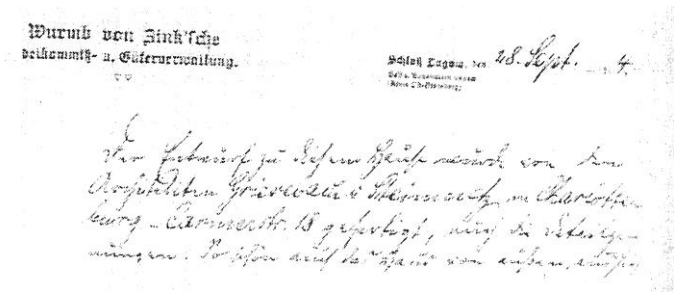 Wurmb von Zink'sche
deikommiß- u. Güterverwaltung.
Schloß Lagow, den 28. Sept. 4.
Der Entwurf zu diesem Hause wurde von den
Architekten Griesebach & Steinmetz in Charlotten
burg - Carmerstr. 18 gefertigt, auch die Detailzeich
nungen. So schön auch das Haus von außen